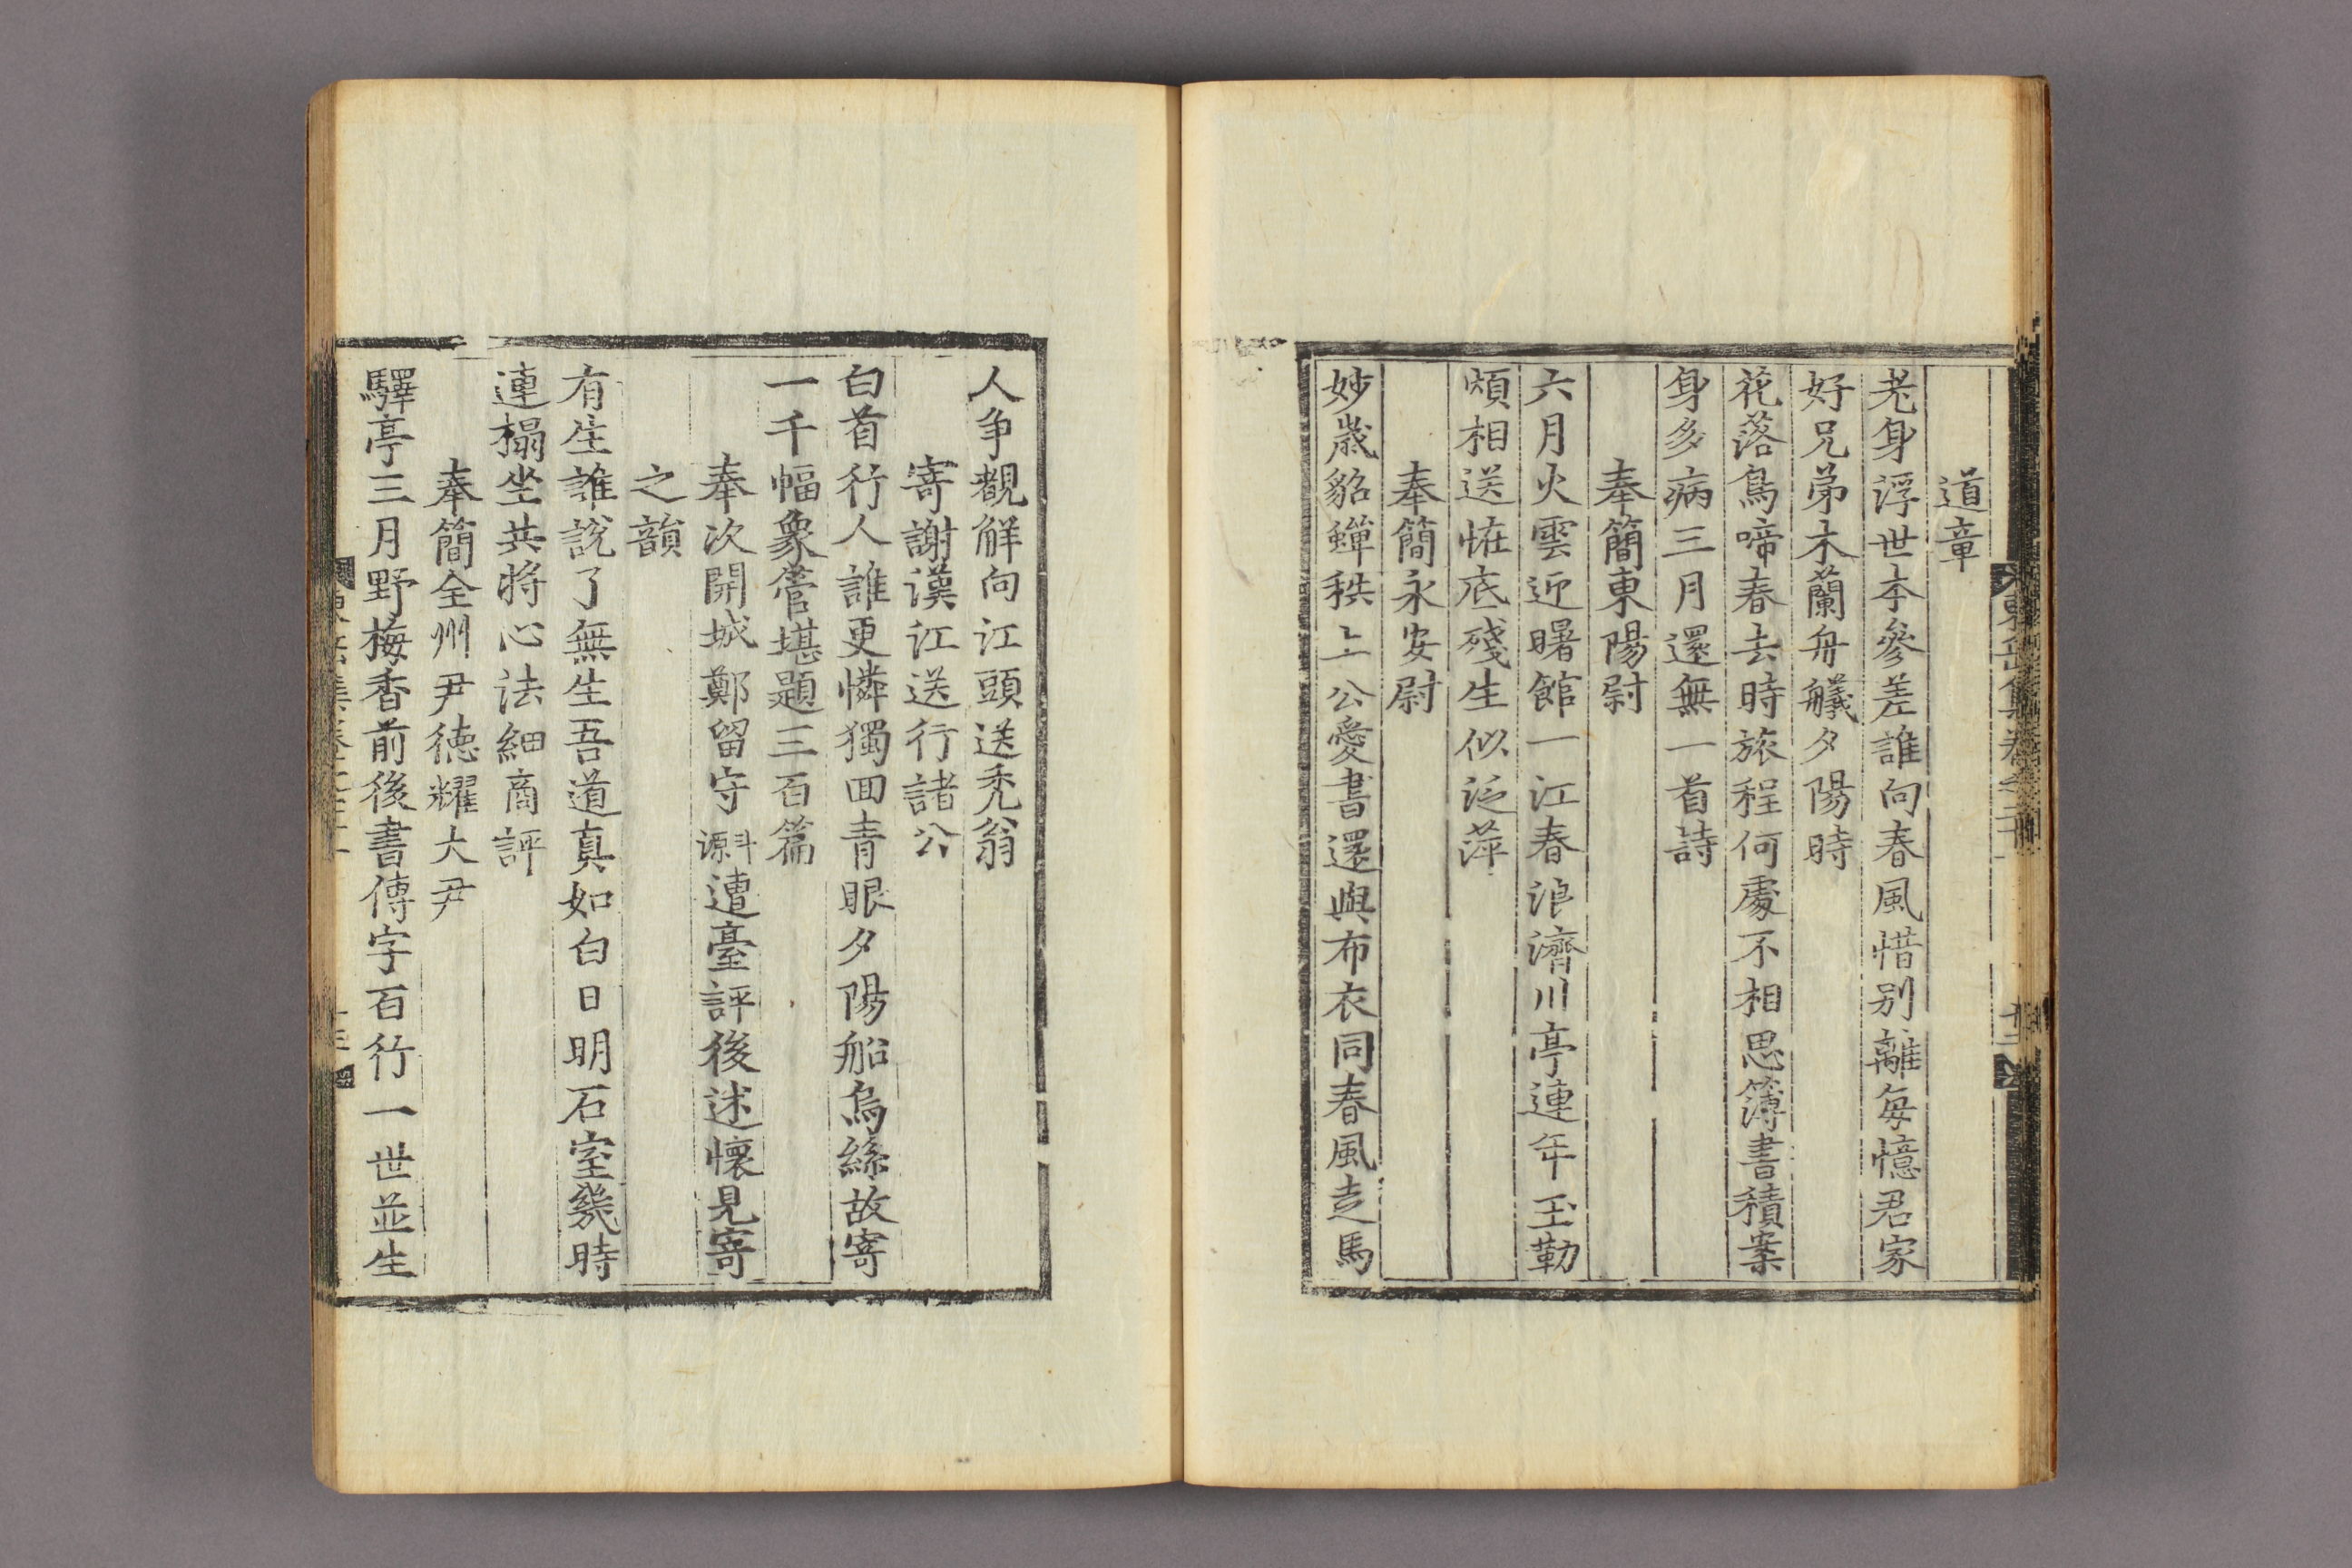 道章
老身浮世本參差誰向春風惜别離每憶君家
好兄弟木蘭舟艤夕陽時
花落鳥啼春去時旅程何處不相思簿書積案
身多病三月還無一首詩
奉簡東陽尉
六月火雲迎曙館一江春浪濟川亭連年玉勒
煩相送怪底殘生似泛萍
奉簡永安尉
妙歲貂蟬秩上公愛書還與布衣同春風走馬
人争覩解向江頭送禿翁
寄謝漢江送行諸公
白首行人誰更憐獨回青眼夕陽船烏絲故寄
一千幅象管堪題三百篇
奉次開城鄭留守斗源遭臺評後述懷見寄
之韻
有生誰說了無生吾道真如白日明石室幾時
連榻坐共將心法細商評
奉簡全州尹德耀大尹
驛亭三月野梅香前後書傳字百行一世並生